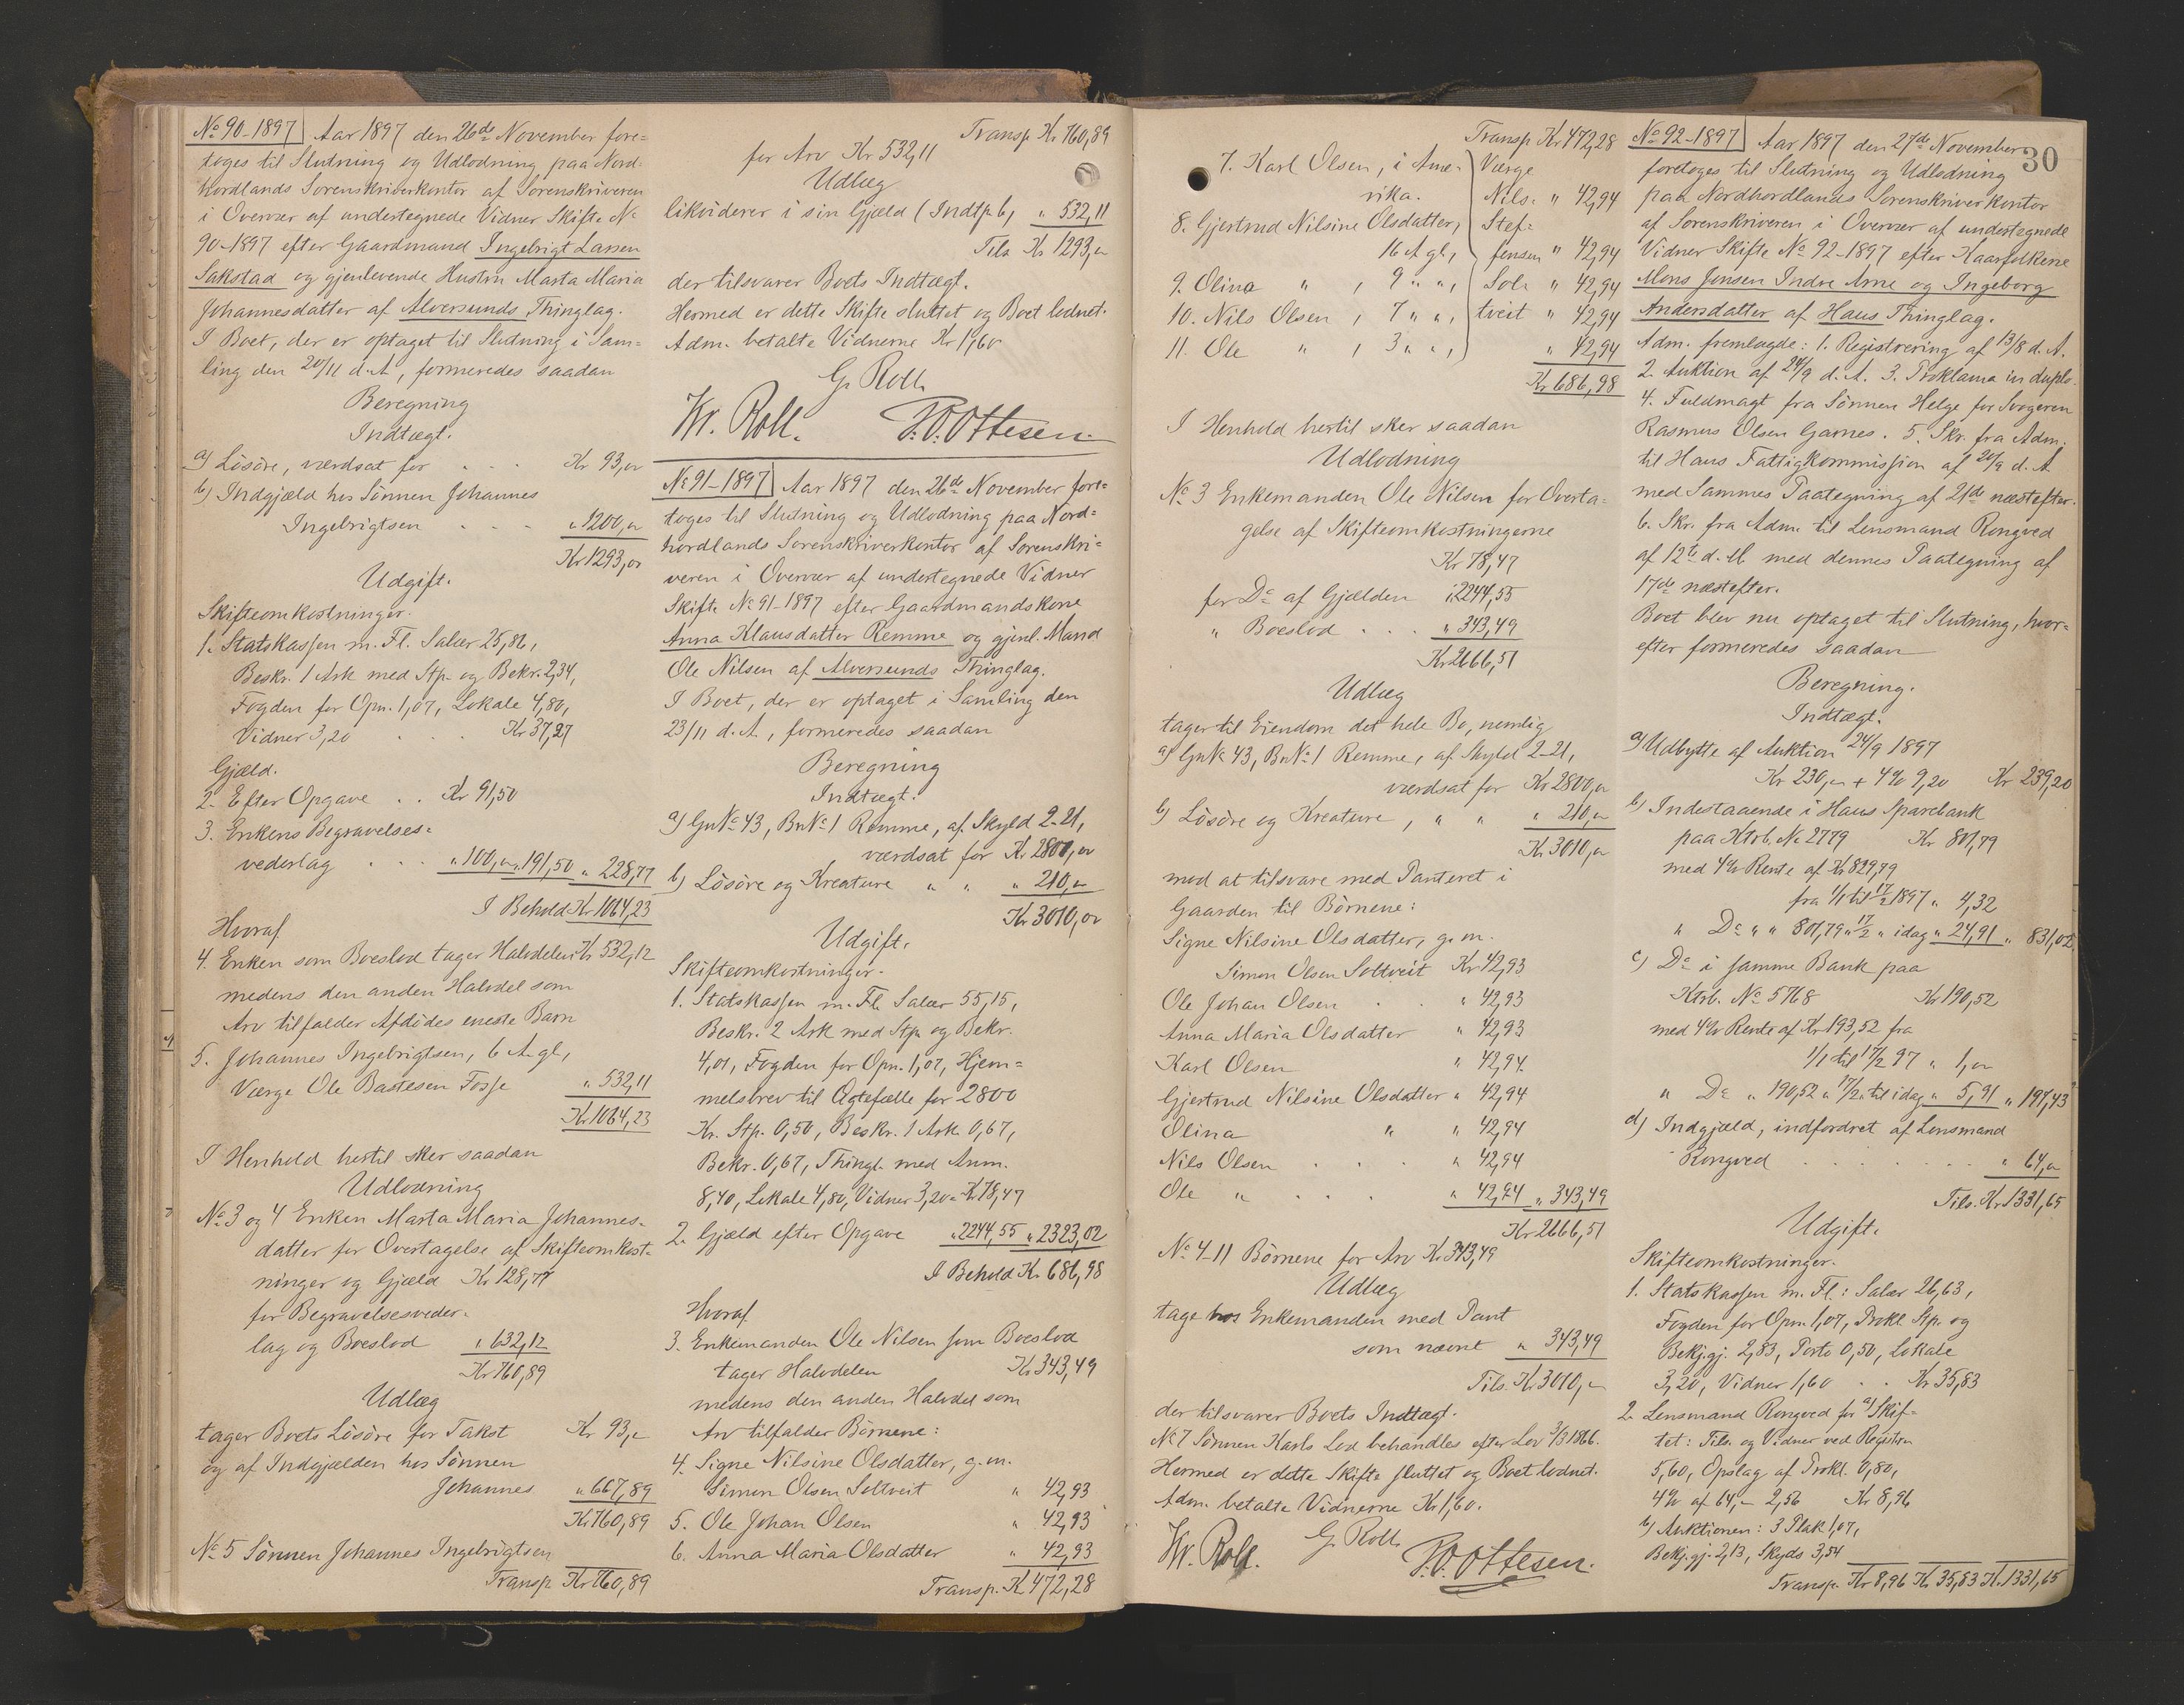 No 90-1897 Aar 1897 den 26de November fore=
toges til Slutning og Udlodning paa Nord=
hordlands Sorenskriverkontor af Sorenskriveren
i Overvær af undertegnede Vidner Skifte No
90-1897 efter Gaardmand Ingebrigt Lassen
Sakstad og gjenlevende Hustru Marta Maria
Johannesdatter af Alversunds Thinglag.
I Boet, der er optaget til Slutning i Sam=
ling den 20/11 d. A, formeredes saadan
Beregning
Indtægt.
a) Lösöre, værdsat for . . . Kr 93,00
b) Indgjæld hos Sönnen Johannes
Ingebrigtsen . . . " 1200,00
Kr 1293,00
Udgift.
Skifteomkostninger.
1. Statskassen m. Fl. Salær 25,86,
Beskr. 1 Ark med Stp. og Bekr. 2,34,
Fogden for Opn. 1,07, Lokale 4,80,
Vidner 3,20 . . . Kr 37,27
Gjæld.
2. Efter Opgave . . Kr 91,50
3. Enkens Begravelses=
vederlag . . . " 100,00 " 191,50 " 228,77
I Behold Kr 1064,23
Hvoraf
4. Enken som Boeslod tager Halvdelen Kr 532,12
medens den anden Halvdel som
Arv tilfalder Afdödes eneste Barn
5. Johannes Ingebrigtsen, 6 A. gl,
Værge Ole Bastesen Fosse " 532,11
Kr 1064,23
I Henhold hertil sker saadan
Udlodning
No 3 og 4 Enken Marta Maria Johannes=
datter for Overtagelse af Skifteomkost=
ninger og Gjæld Kr 128,77
for Begravelsesveder=
lag og Boeslod " 632,12
Kr 760,89
Udlæg
tager Boets Lösöre for Takst Kr 93,00
og af Indgjælden hos Sönnen
Johannes " 667,89
Kr 760,89
No 5 Sönnen Johannes Ingebrigtsen
Transp Kr 760,89
Transp Kr 760,89
for Arv Kr 532,11
Udlæg
likviderer i sin Gjæld (Indtp. b) " 532,11
Tils Kr 1293,00
der tilsvarer Boets Indtægt.
Hermed er dette Skifte sluttet og Boet lodnet.
Adm. betalte Vidnerne Kr 1,60
G. Roll.
Kr. Roll. P.O. Ottesen.
No 91-1897 Aar 1897 den 26de November fore=
toges til Slutning og Udlodning paa Nord=
hordlands Sorenskriverkontor af Sorenskri=
veren i Overvær af undertegnede Vidner
Skifte No 91-1897 efter Gaardmandskone
Anna Klausdatter Remme og gjenl. Mand
Ole Nilsen af Alversunds Thinglag.
I Boet, der er optaget i Samling den
23/11 d. A, formeredes saadan
Beregning
Indtægt.
a) GnNo 43, BnNo 1 Remme, af Skyld 2-21,
værdsat for Kr 2800,00
b) Lösöre og Kreature " " " 210,00
Kr 3010,00
Udgift.
Skifteomkostninger.
1. Statskassen m. Fl. Salær 55,15,
Beskr. 2 Ark med Stp. og Bekr.
4,01, Fogden for Opn. 1,07, Hjem=
melsbrev til Ægtefælle for 2800
Kr. Stp. 0,50, Beskr. 1 Ark 0,67,
Bekr. 0,67, Thingl. med Anm.
8,40, Lokale 4,80, Vidner 3,20 Kr 78,47
2. Gjæld efter Opgave " 2244,55 " 2323,02
I Behold Kr 686,98
Hvoraf
3. Enkemanden Ole Nilsen som Boeslod
tager Halvdelen Kr 343,49
medens den anden Halvdel som
Arv tilfalder Börnene:
4. Signe Nilsine Olsdatter, g. m.
Simon Olsen Soltveit " 42,93
5. Ole Johan Olsen " 42,93
6. Anna Maria Olsdatter " 42,93
Transp. Kr 472,28
Transp Kr 472,28
7. Karl Olsen, i Ame= Værge
rika. Nils " 42,94
8. Gjertrud Nilsine Olsdatter, Stef=
16 A gl, fensen " 42,94
9. Olina " , 9 " ", Sol= " 42,94
10. Nils Olsen , 7 " ", tveit " 42,94
11. Ole " , 3 " ", " 42,94
Kr 686,98
I Henhold hertil sker saadan
Udlodning
No 3 Enkemanden Ole Nilsen for Overta=
gelse af Skifteomkostningerne
Kr 78,47
for Do af Gjælden " 2244,55
" Boeslod . . . " 343,49
Kr 2666,51
Udlæg
tager til Eiendom det hele Bo, nemlig
a) GnNo 43, BnNo 1 Remme, af Skyld 2-21,
værdsat for Kr 2800,00
b) Lösöre og Kreature, " " " 210,00
Kr 3010,00
mod at tilsvare med Panteret i
Gaarden til Börnene:
Signe Nilsine Olsdatter, g. m.
Simon Olsen Soltveit Kr 42,93
Ole Johan Olsen . . " 42,93
Anna Maria Olsdatter " 42,93
Karl Olsen " 42,94
Gjertrud Nilsine Olsdatter " 42,94
Olina " " 42,94
Nils Olsen . . . " 42,94
Ole " . . . " 42,94 " 343,49
Kr 2666,51
No 4-11 Börnene for Arv Kr 343,49
Udlæg
tage hos Enkemanden med Pant
som nævnt " 343,49
Tils. Kr 3010,00
der tilsvarer Boets Indtægt.
No 7 Sönnen Karls Lod behandles efter Lov 3/3 1866.
Hermed er dette Skifte sluttet og Boet lodnet.
Adm. betalte Vidnerne Kr 1,60.
G. Roll.
Kr. Roll. P.O. Ottesen.
30
No 92-1897 Aar 1897 den 27de November
foretoges til Slutning og Udlodning
paa Nordhordlands Sorenskriverkontor
af Sorenskriveren i Overvær af undertegnede
Vidner Skifte No 92-1897 efter Kaarfolkene
Mons Jonsen Indre Arne og Ingeborg
Andersdatter af Haus Thinglag.
Adm. fremlagde: 1. Registrering af 13/8 d. A.
2. Auktion af 24/9 d. A. 3. Proklama in duplo.
4. Fuldmagt fra Sönnen Helge for Svogeren
Rasmus Olsen Garnes. 5. Skr. fra Adm.
til Haus Fattigkommission af 20/9 d. A
med Sammes Paategning af 21de næstefter.
6. Skr. fra Adm. til Lensmand Rongved
af 12te d. M med dennes Paategning af
17de næstefter.
Boet blev nu optaget til Slutning, hvor=
efter formeredes saadan
Beregning.
Indtægt.
a) Udbytte af Auktion 24/9 1897
Kr 230,00 + 4% 9,20 Kr 239,20
b) Indestaaende i Haus Sparebank
paa Ktrb. No 2779 Kr 801,79
med 4% Rente af Kr 829,79
fra 1/1 til 17/2 1897 " 4,32
" Do " " 801,79 " 17/2 " idag " 24,91 " 831,02
c) Do i samme Bank paa
Ktrb. No 5768 Kr 190,52
med 4% Rente af Kr 193,52 fra
1/1 til 17/2 97 " 1,00
" Do " 190,52 " 17/2 til idag " 5,91 " 197,43
d) Indgjæld, indfordret af Lensmand
Rongved . . . " 64,00
Tils. Kr 1331,65
Udgift.
Skifteomkostninger.
1. Statskassen m. Fl.: Salær 26,63,
Fogden for Opn. 1,07, Prokl. Stp. og
Bekj.gj. 2,83, Porto 0,50, Lokale
3,20, Vidner 1,60 . . Kr 35,83
2. Lensmand Rongved for a) Skif=
tet: Tils. og Vidner ved Registrn
5,60, Opslag af Prokl. 0,80,
4% af 64,00 2,56 Kr 8,96
b) Auktionen: 3 Plak. 1,07,
Bekj.gj. 2,13, Skyds 3,54
Transp. Kr 8,96 Kr 35,83 Kr 1331,65